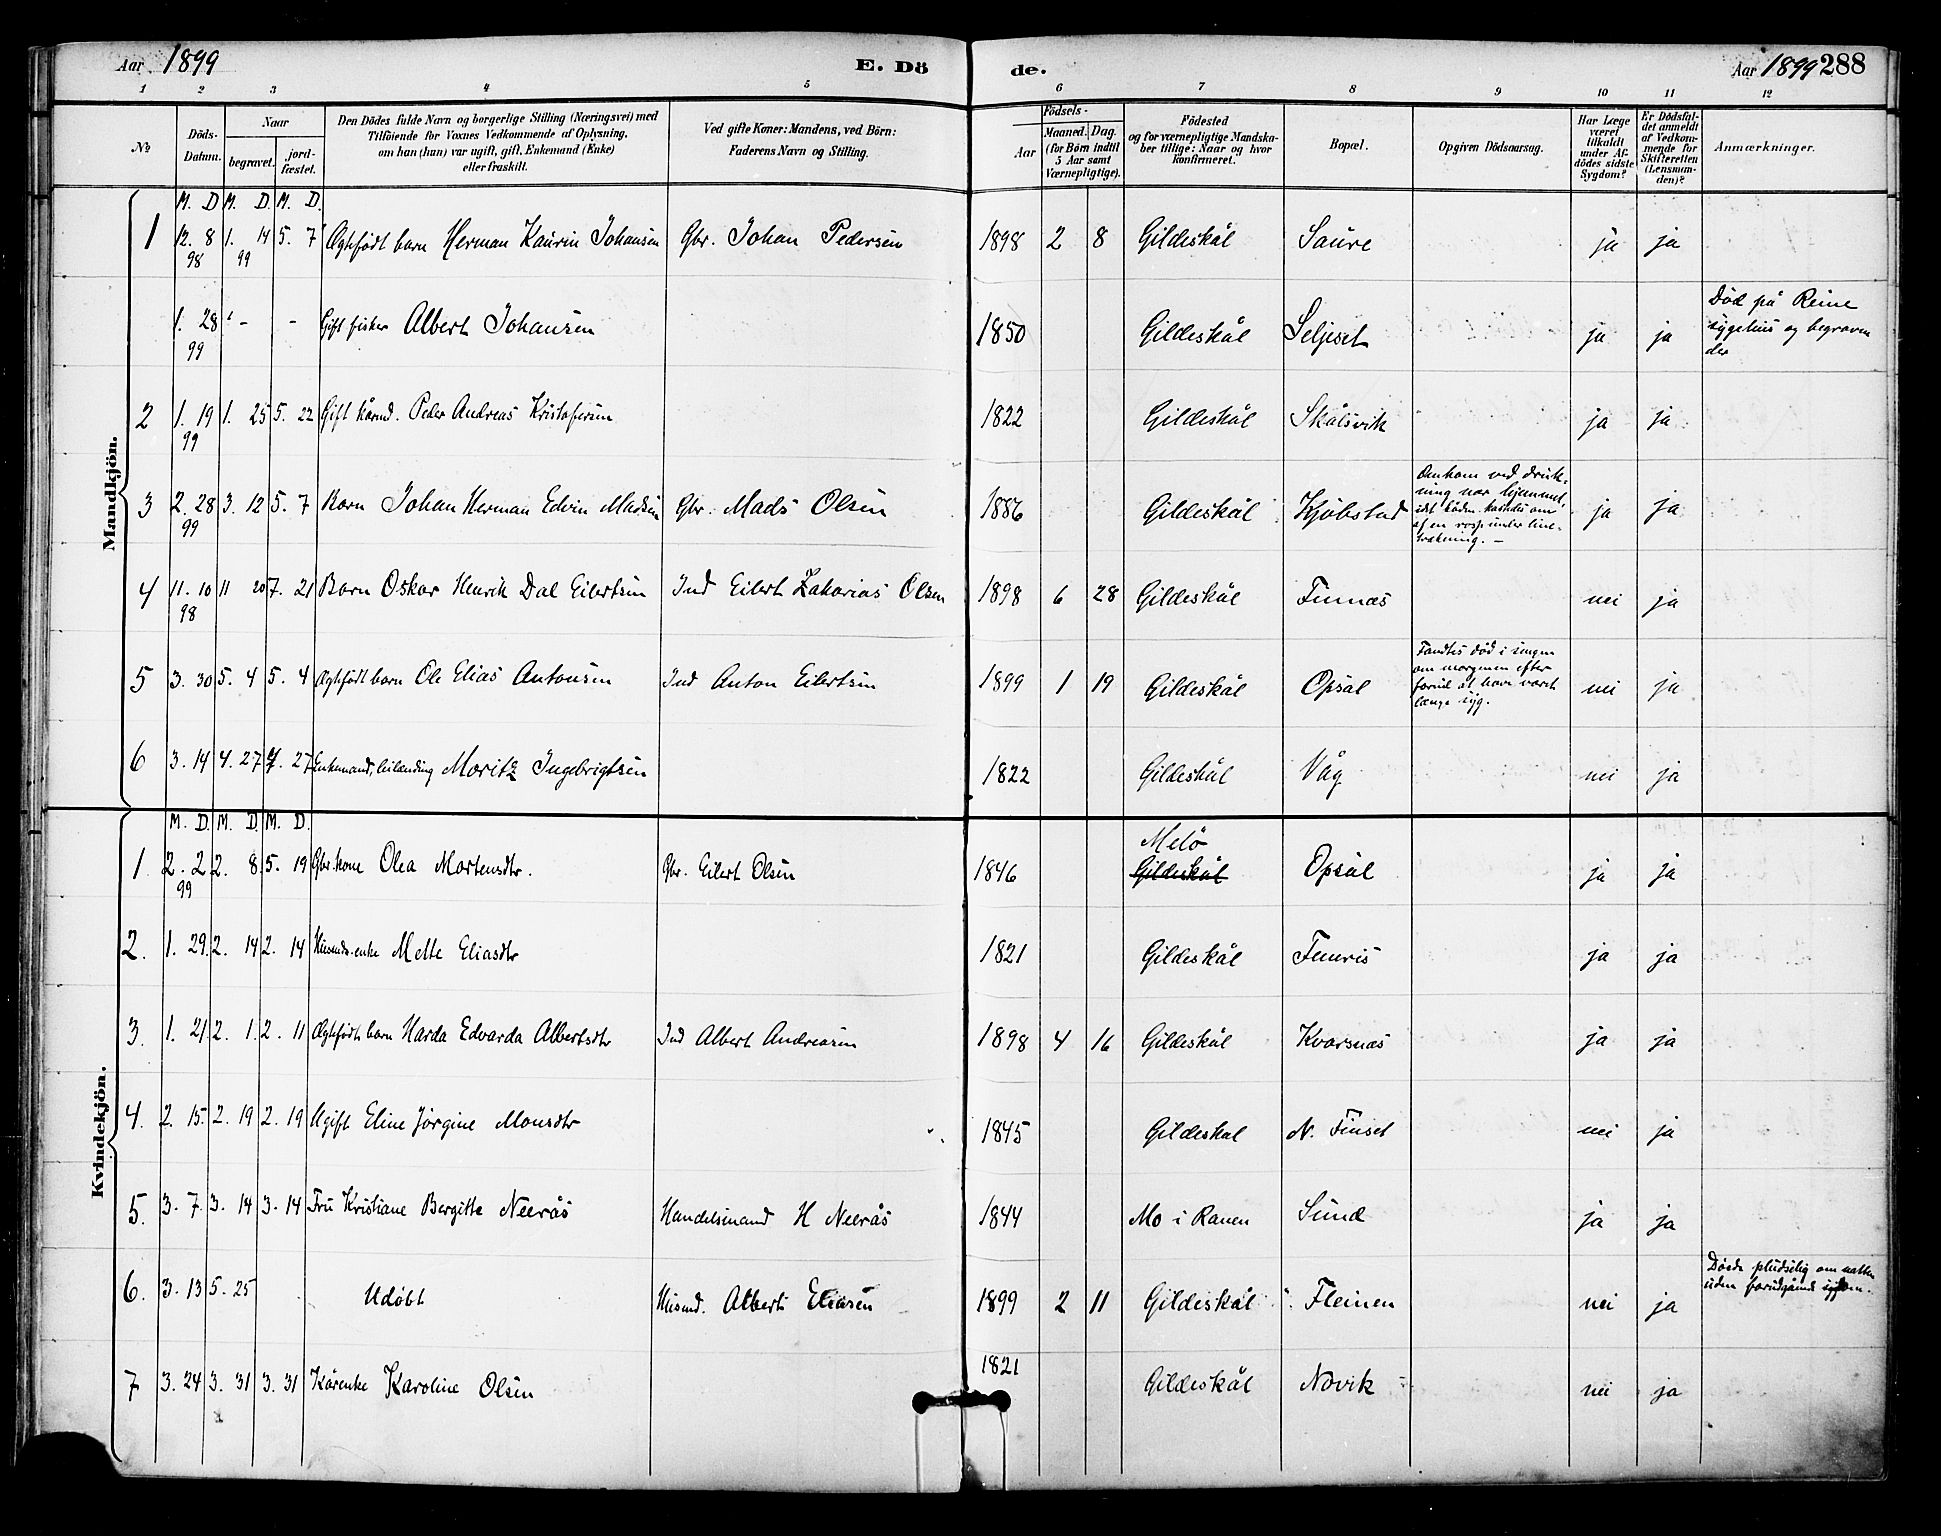 Aar 1899 E. Dö de. Aar 1899 288
1 2 3 4 5 6 7 8 9 10 11 12
№
Döds-Datum.
Naar
begravet.
jord-fæstet.
Den Dödes fulde Navn og borgerlige Stilling (Næringsvei) med
Tilföiende for Voxnes Vedkommende af Oplysning,
om han (hun) var ugift, gift, Enkemand (Enke)
eller fraskilt.
Ved gifte Koner: Mandens, ved Börn:
Faderens Navn og Stilling.
Födsels-
Aar
Maaned. Dag.
(for Börn indtil
5 Aar samt
Værnepligtige).
Födested
og for værnepligtige Mandska-
ber tillige: Naar og hvor
konfirmeret.
Bopæl.
Opgiven Dödsaarsag.
Har Læge
været
tilkaldt
under Af-
dödes sidste
Sygdom?
Er Dödsfal-
det anmeldt
af Vedkom-
mende for
Skifteretten
(Lensman-
den)?
Anmærkninger.
Mandkjön.
M. D. M. D. M. D.
1 12. 8 1. 14 5. 7 Ægtefödt barn Herman Kaurin Johansen Gbr. Johan Pedersen 1898 2 8 Gildeskål Saure ja ja
98 99
1. 28 - - Gift fisker Albert Johansen 1850 Gildeskål Seljeset ja ja Död på Reine
99 sygehus og begraven
der
2 1. 19 1. 25 5. 22 Gift kårmd. Peder Andreas Kristofersen 1822 Gildeskål Skålsvik ja ja
99
3 2. 28 3. 12 5. 7 Barn Johan Herman Edvin Madsen Gbr. Mads Olsen 1886 Gildeskål Kjöbstad Omkom ved druk-
ning nær hjemmet, ja ja
99 idet båden kastedes om
af en rosp under line-
trækning. -
4 11. 10 11 20 7. 21 Barn Oskar Henrik Dal Eilertsen Ind Eilert Zakarias Olsen 1898 6 28 Gildeskål Finnæs nei ja
98
5 3. 30 5. 4 5. 4 Ægtefödt barn Ole Elias Antonsen Ind Anton Eilertsen 1899 1 19 Gildeskål Opsal Fandtes död i sengen
om morgenen efter
forud at have været nei ja
længe syg.
6 3. 14 4. 27 4. 27 Enkemand, leilænding Moritz Ingebrigtsen 1822 Gildeskål Våg nei ja
Kvindekjön.
M. D. M. D. M. D.
1 2. 2 2. 8 5. 19 Gbr.kone Olea Mortensdtr. Gbr. Eilert Olsen 1846 Melö Gildeskål Opsal ja ja
99
2. 1. 29. 2. 14 2. 14 Husmds.enke Mette Eliasdtr 1821 Gildeskål Finnvis ja ja
3. 1. 21. 2. 1. 2. 11 Ægtefödt barn Harda Edvarda Albertsdtr Ind Albert Andreasen 1898 4 16 Gildeskål Kvarsnæs ja ja
4. 2. 15. 2. 19 2. 19 Ugift Eline Jörgine Monsdtr 1845 Gildeskal N. Finset nei ja
5. 3. 7. 3. 14 3. 14 Fru Kristiane Bergitte Neerås Handelsmand H Neerås 1844 Mo i Ranen Sund ja ja
6. 3. 13 5. 25 Udöbt Husmd. Albert Eliasen 1899 2 11 Gildeskål Fleinen nei ja Döede pludselig om natten
uden forudgående sygdom.
7 3. 24 3. 31 3. 31 Kårenke Karoline Olsen 1821 Gildeskål Novik nei ja